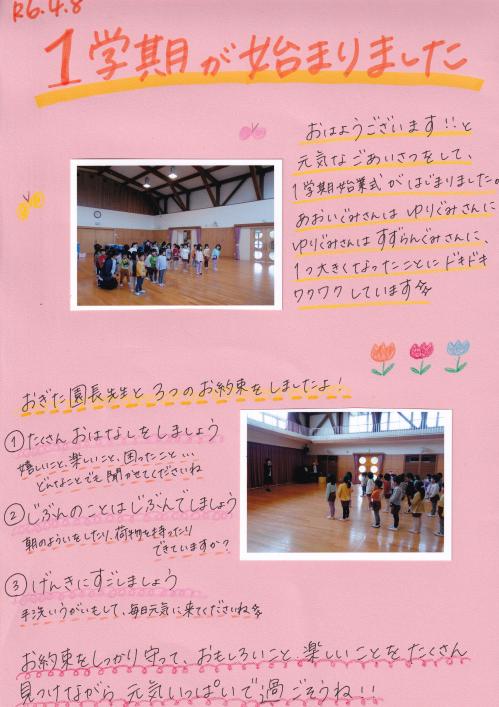 R6.4.8
1学期が始まりました
おはようございます!!と
元気なごあいさつをして、
1学期始業式がはじまりました。
あおいぐみさんは ゆりぐみさんに
ゆりぐみさんは すずらんぐみさんに、
1つ大きくなったことに ドキドキ
ワクワクしています☆
おぎた園長先生と 3つのお約束をしましたよ!
①たくさんおはなしをしましょう
嬉しいこと、楽しいこと、困ったこと…
どんなことでも聞かせてくださいね
②じぶんのことはじぶんでしましょう
朝のよういをしたり、荷物を持ったり
できていますか?
③げんきにすごしましょう
手洗いうがいもして、毎日元気に来てくださいね☆
お約束をしっかり守って、おもしろいこと、楽しいことをたくさん
見つけながら 元気いっぱいで過ごそうね!!